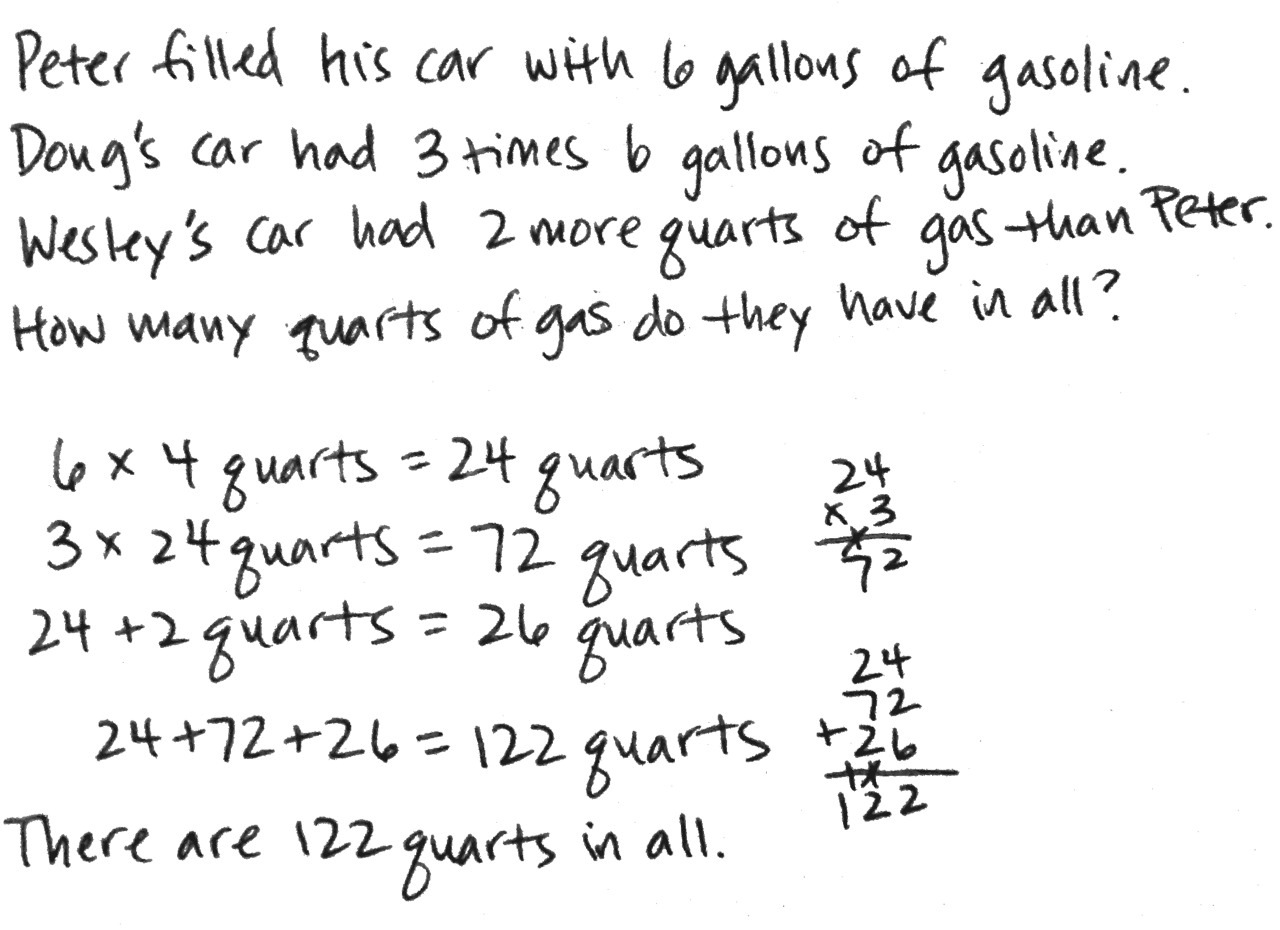 Peter filled his car with 6 gallons of gasoline.
Doug's car had 3 times 6 gallons of gasoline.
Wesley's car had 2 more quarts of gas than Peter.
How many quarts of gas do they have in all?
6 × 4 quarts = 24 quarts
3 × 24 quarts = 72 quarts
24 + 2 quarts = 26 quarts
24 + 72 + 26 = 122 quarts
There are 122 quarts in all.
24
× 3
1
72
24
72
+ 26
1 1
122